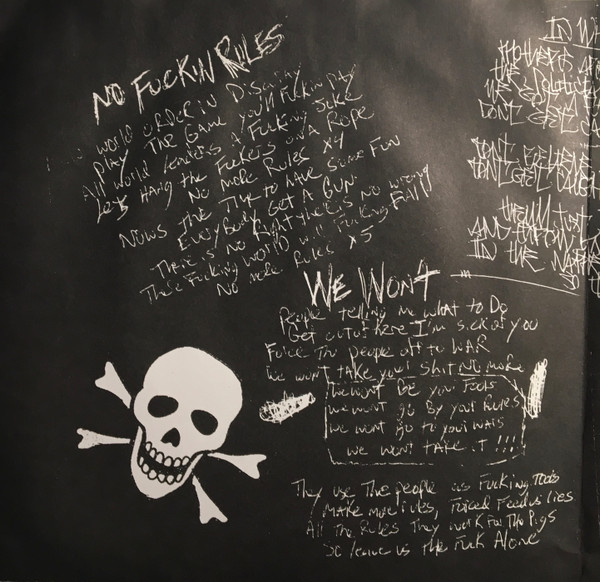 NO FUCKIN RULES
WORLD ORDER IN DISARAY
PLAY THE GAME YOU'll Fuckin PAY
All World leaders A Fucking Joke
Let's Hang the Fuckers on A Rope
No More Rules x4
Nows The Time to have some Fun
Everybody Got A Gun
There is no Right there is no wrong
These Fucking World will Fucking Fall
No more Rules x5
WE WONT
People telling me what to Do
Get out of here I'm sick of you
Force the people off to WAR
We won't take your shit no more
We wont be your Fools
we wont go By your Rules
we wont go to your wars
we wont take it !!!
They use The people as Fucking Tools
Make more rules, Forced Feed us lies
All The Rules They work For The Pigs
So leave us the Fuck Alone
IN
THE
DONT
DONT BELIEVE
DONT
THEYLL JUST
AND
IN THE